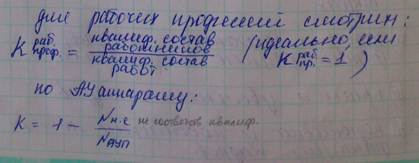 для рабочих профессий смотрим:
К раб. проф. = квалиф. состав работников / квалиф. состав работ (идеально, если К раб. пр. = 1)
по АУаппарату:
К = 1 - Nн.с / Nауп не соответств квалиф.